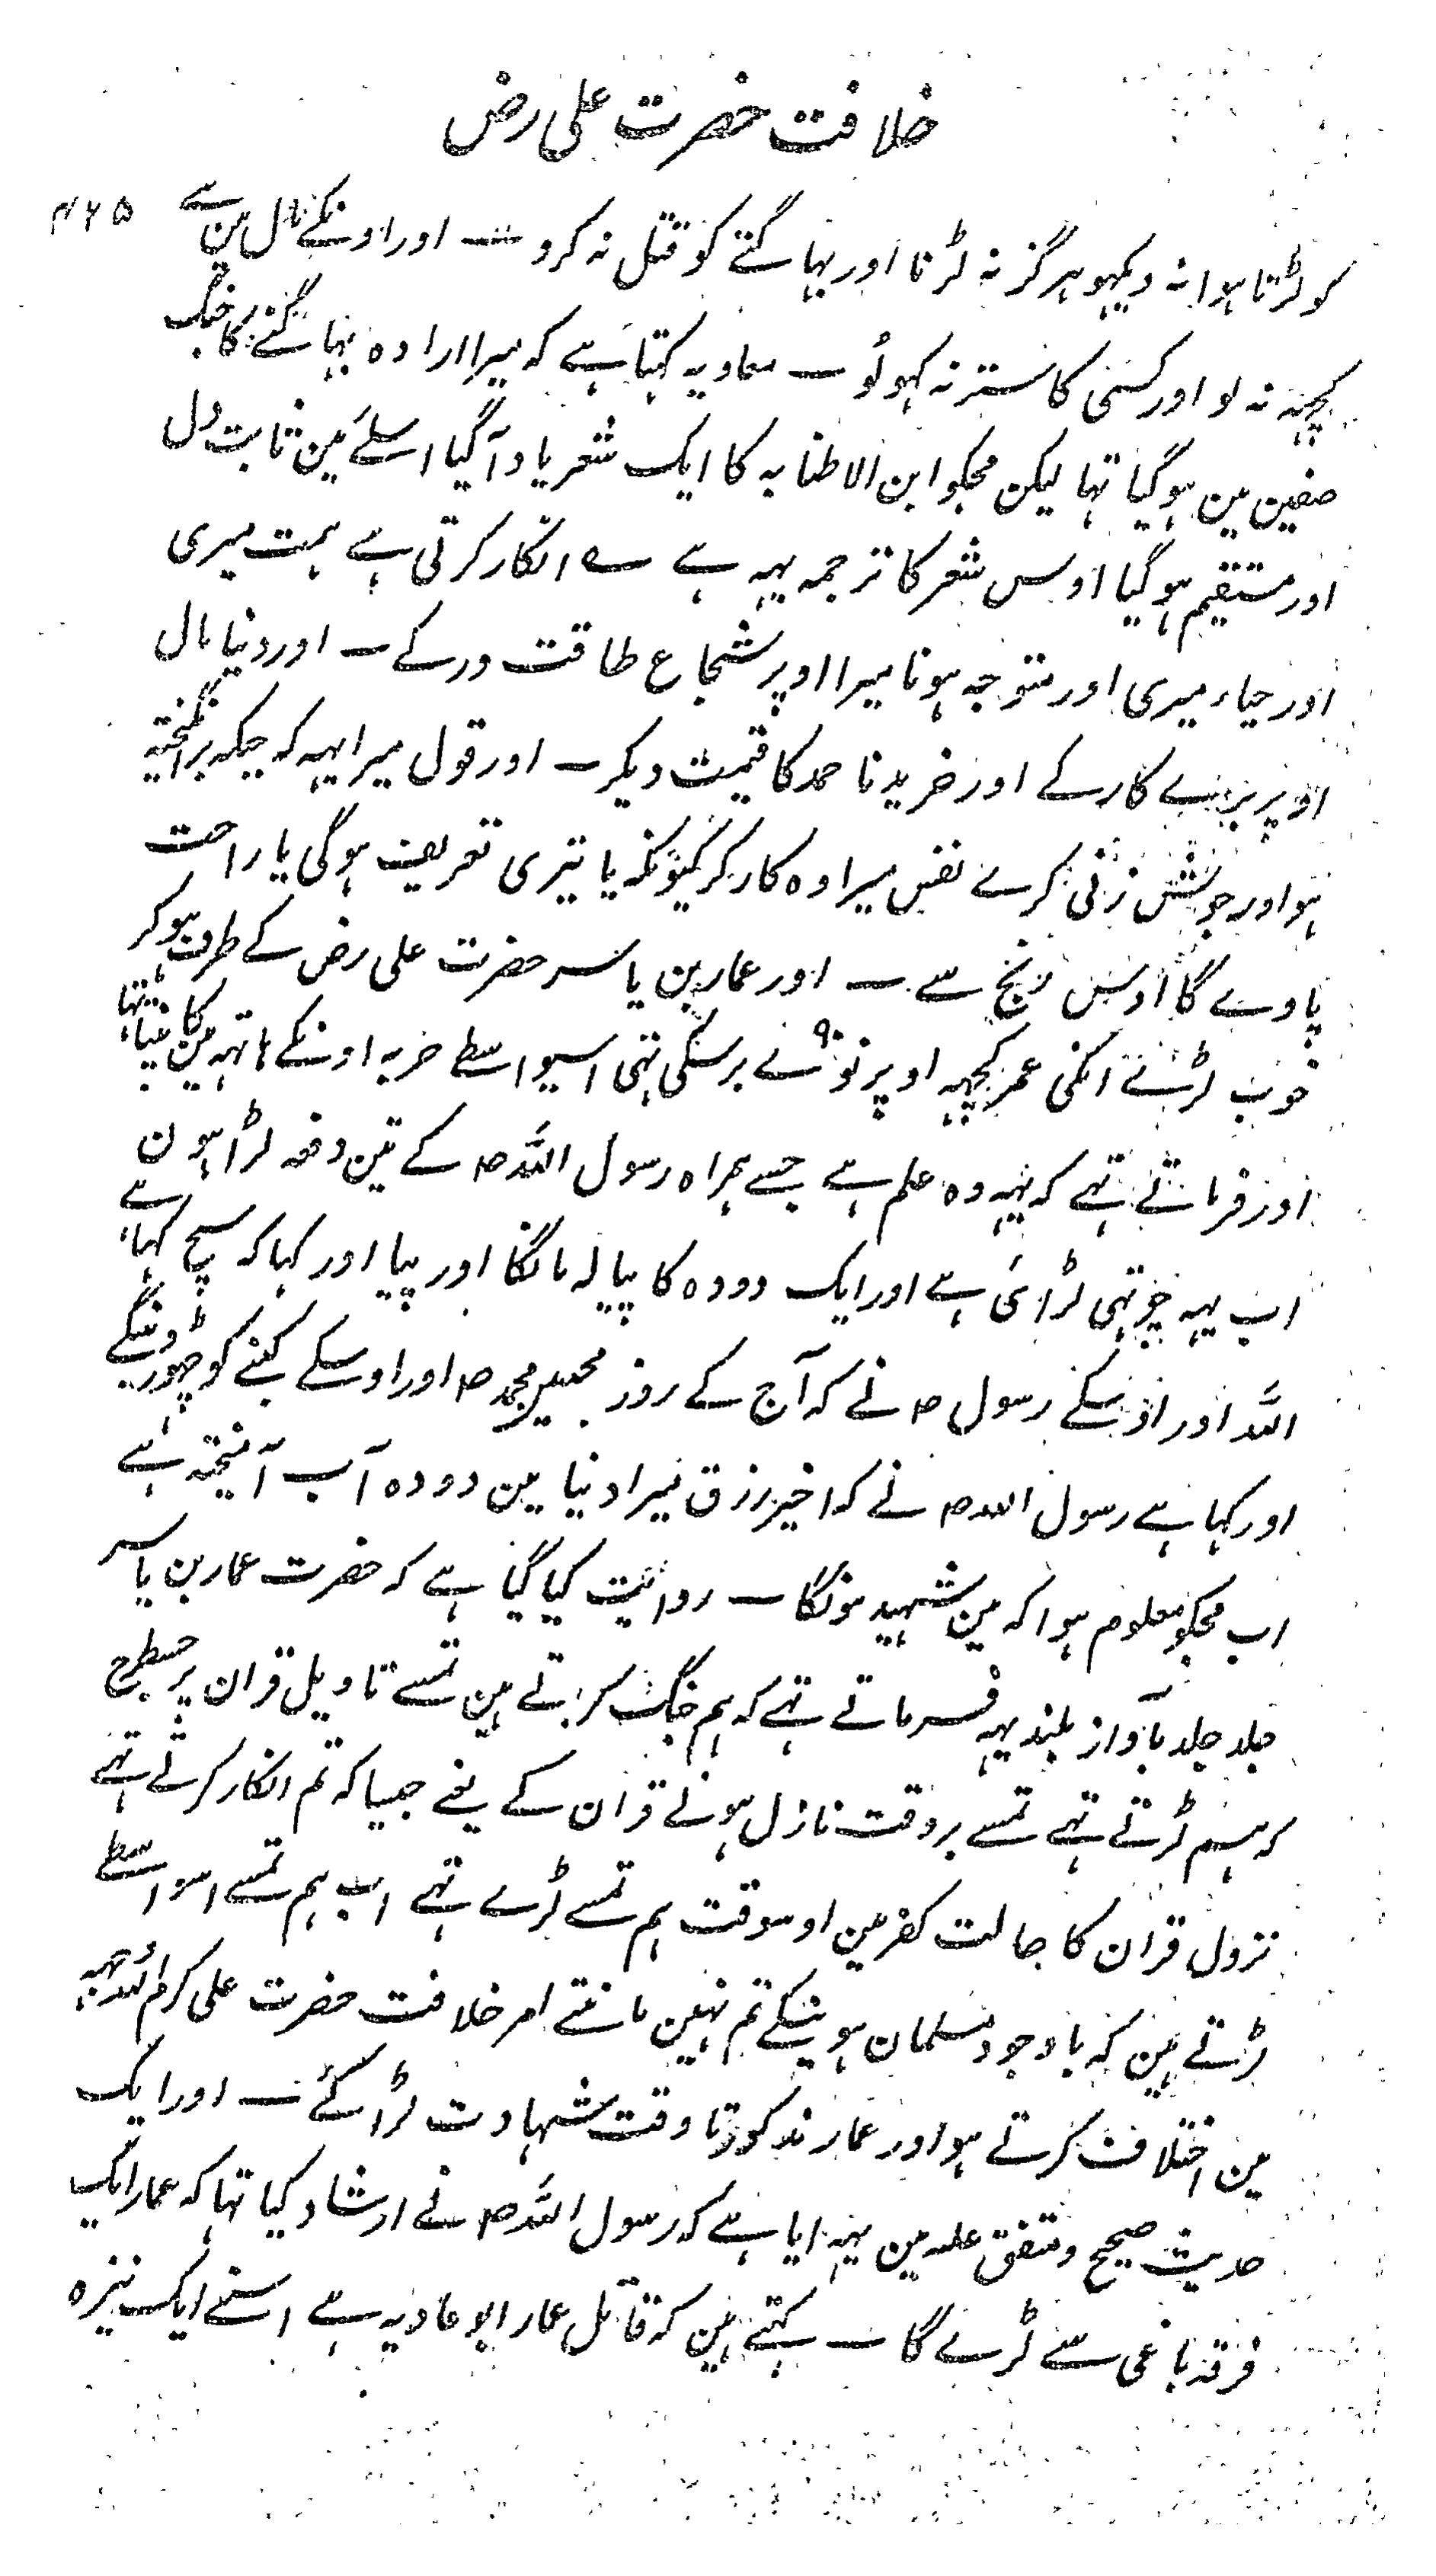 خلافت حضرت علی رض
۴۶۵
کو لڑتا ہوا نہ دیکہو ہرگز نہ لڑنا اور بہاگتے کو قتل نہ کرو ۔ اور اونکے مال مین سے
کچہہ نہ لو اور کسی کا ستر نہ کہولو ۔ معاویہ کہتا ہے کہ میرا ارادہ بہاگنے کا جنگ
صفین مین ہوگیا تہا لیکن مجکو ابن الاطنابہ کا ایک شعر یاد آگیا اسلئے مین ثابت دل
اور مستقیم ہوگیا اوس شعر کا ترجمہ یہہ ہے ے انکار کرتی ہے ہمت میری
اور حیاء میری اور متوجہ ہونا میرا اوپر شجاع طاقت ور کے ۔ اور دنیا مال
اوپر بے کار کے اور خریدنا حمد کا قیمت دیکر ۔ اور قول میرا یہہ کہ جبکہ برانگیختہ
ہو اور جوشش زنی کرے نفس میرا وہ کار کر کیونکہ یا تیری تعریف ہوگی یا راحت
پاوے گا اوس رنج سے ۔ اور عمار بن یاسر حضرت علی رض کے طرف ہوکر
خوب لڑے انکی عمر کچہہ اوپر نوے ۹۰ برسکی تہی اسیواسطے حربہ اونکے ہاتہہ مین کانپتا تہا
اور فرماتے تہے کہ یہہ وہ علم ہے جسے ہمراہ رسول اللہ ص کے تین دفعہ لڑا ہون
اب یہہ چوتہی لڑائی ہے اور ایک دودہ کا پیالہ مانگا اور پیا اور کہا کہ سچ کہا ہے
اللہ اور اوسکے رسول ص نے کہ آج کے روز محمد ص اور اوسکے کنبے کو چہوڑ
اور کہا ہے رسول اللہ ص نے کہ اخیر رزق میرا دنیا مین دودہ آب آمیختہ ہے
اب مجکو معلوم ہوا کہ مین شہید ہونگا ۔ روایت کیا گیا ہے کہ حضرت عمار بن یاسر
جلد جلد بآواز بلند یہہ فرماتے تہے کہ ہم جنگ کرتے ہین تمسے تاویل قران پر جسطرح
کہ ہم لڑتے تہے تمسے بروقت نازل ہونے قران کے یعنے جیسا کہ تم انکار کرتے تہے
نزول قران کا حالت کفر مین اوسوقت ہم تمسے لڑے تہے اب ہم تمسے اسواسطے
لڑتے ہین کہ باوجود مسلمان ہونیکے تم نہین مانتے امر خلافت حضرت علی کرم اللہ وجہہ
مین اختلاف کرتے ہو اور عمار مذکور تا وقت شہادت لڑا کئے ۔ اور ایک
حدیث صحیح و متفق علیہ مین یہہ ایا ہے کہ رسول اللہ ص نے ارشاد کیا تہا کہ عمار ایک
فرقہ باغی سے لڑے گا ۔ کہتے ہین کہ قاتل عمار ابو عادیہ ہے اسنے ایک نیزہ